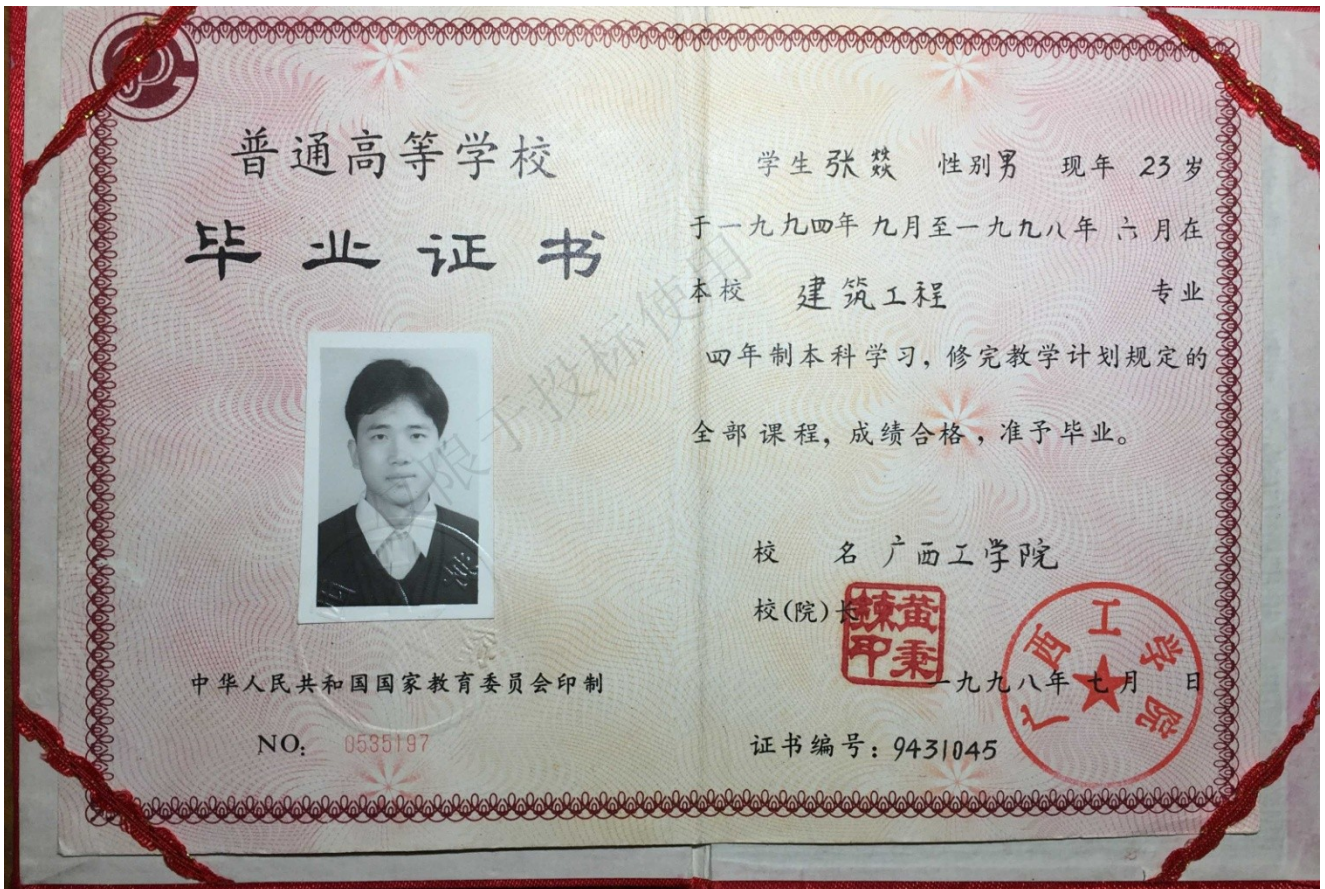 普通高等学校
毕业证书
中华人民共和国国家教育委员会印制
NO: 0535197
学生 张燚 性别 男 现年 23 岁
于一九九四年 九月至一九九八年 六月在
本校 建筑工程 专业
四年制本科学习，修完教学计划规定的
全部课程，成绩合格，准予毕业。
校 名 广西工学院
校(院)长
黄秉
炼印
一九九八年 七月 日
广西工学院
证书编号：9431045
限于投标使用